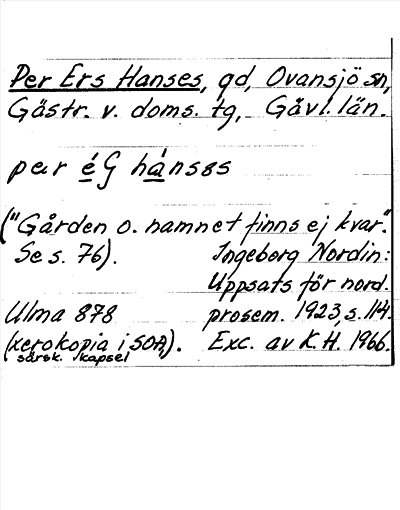 Per Ers Hanses, gd, Ovansjö sn,
Gästr. v. doms. tg, Gävl. län.
par é̲G há̲nsəs
("Gården o. namnet finns ej kvar."
Se s. 76). Ingeborg Nordin:
Uppsats för nord.
Ulma 878 prosem. 1923, s. 114.
(xerokopia i SOA). Exc. av K.H. 1966.
särsk. kapsel